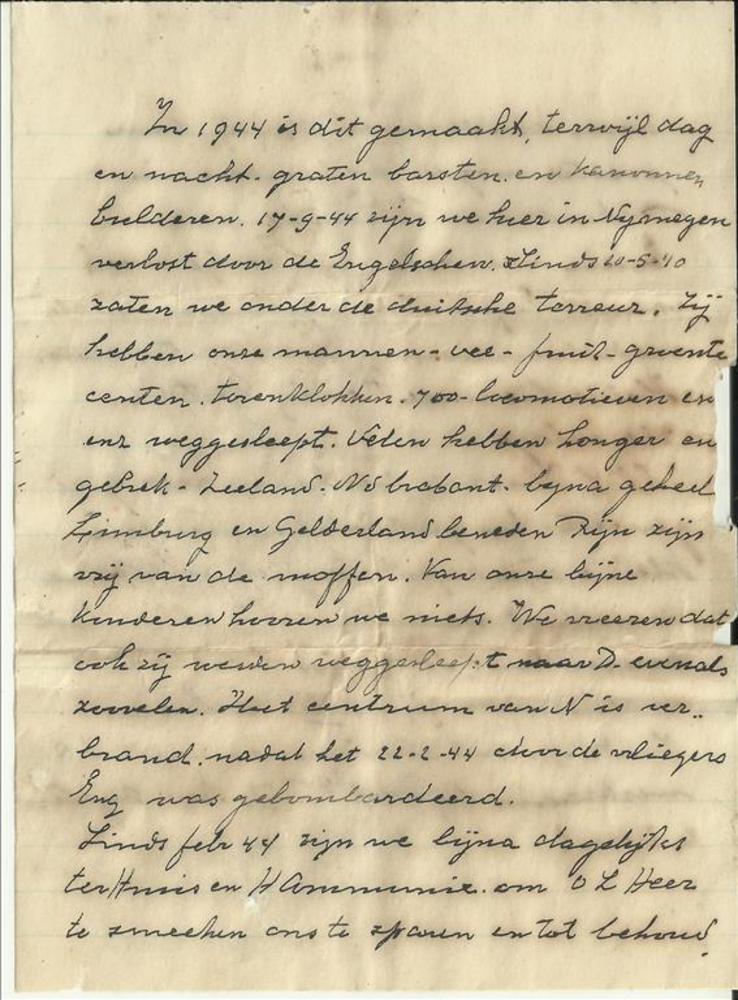 In 1944 is dit gemaakt, terwijl dag
en nacht - graten barsten. en kanonnen
bulderen. 17-9-44 zijn we hier in Nymegen
verlost door de Engelschen. Sinds 10-5-40
zaten we onder de duitsche terreur. Zij
hebben onze mannen - vee - fruit - groente
centen. torenklokken. 700 - locomotieven en
enz weggesleept. Velen hebben honger en
gebrek - Zeeland. Nd brabant. byna geheel
Limburg en Gelderland beneden Rijn zijn
vrij van de moffen. Van onze
kinderen hooren we niets. We vreezen dat
ook zij werden weggesleept naar D. evenals
zoovelen. Het centrum van N is ver..
brand. nadat het 22-2-44 door de vliegers
Eng was gebombardeerd.
Sinds febr 44 zijn we bijna dagelijks
ter H mis en H Communie. om O L Heer
te smeeken ons te sparen en tot behoud.